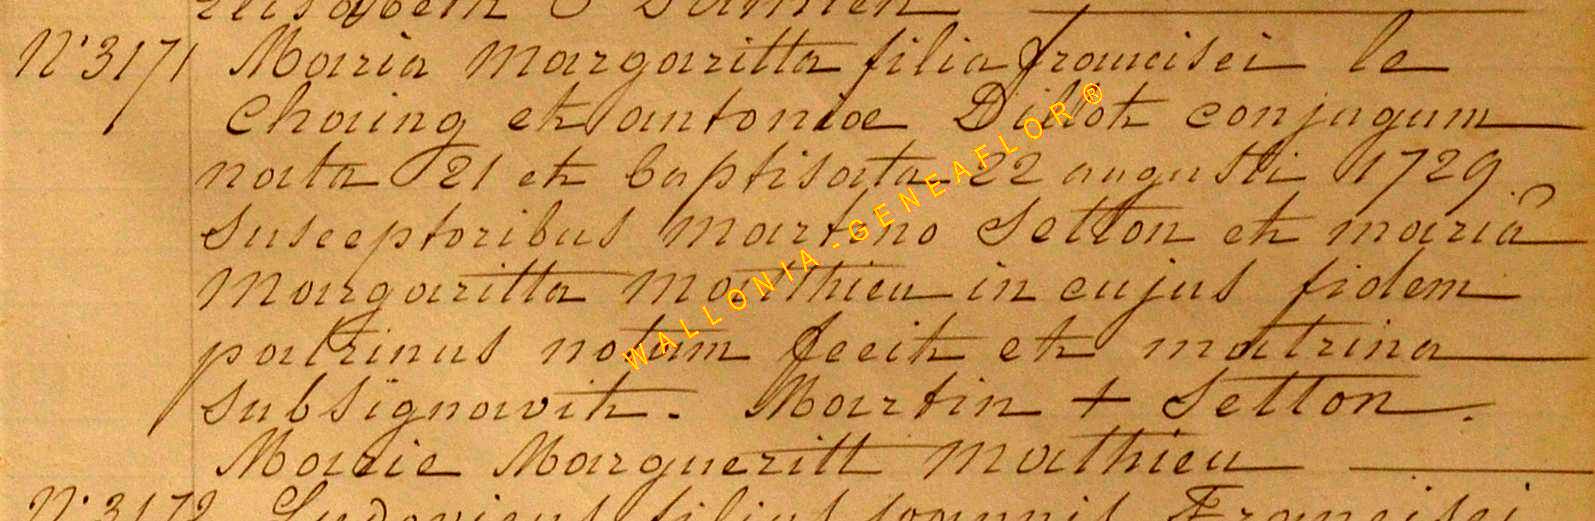 Elisabeth C Damien
N° 3171 Maria Margaritta filia francisci le
Choing et antoniae Dillot conjugum
nata 21 et baptisata 22 augusti 1729
susceptoribus martino Setton et mariâ
Margaritta Matthieu in cujus fidem
patrinus notam fecit et matrina
subsignavit. Martin + Setton.
Marie Margueritt Mathieu
N° 3172 Ludovicus filius joannis Francisci
WALLONIA-GENEAFLOR®